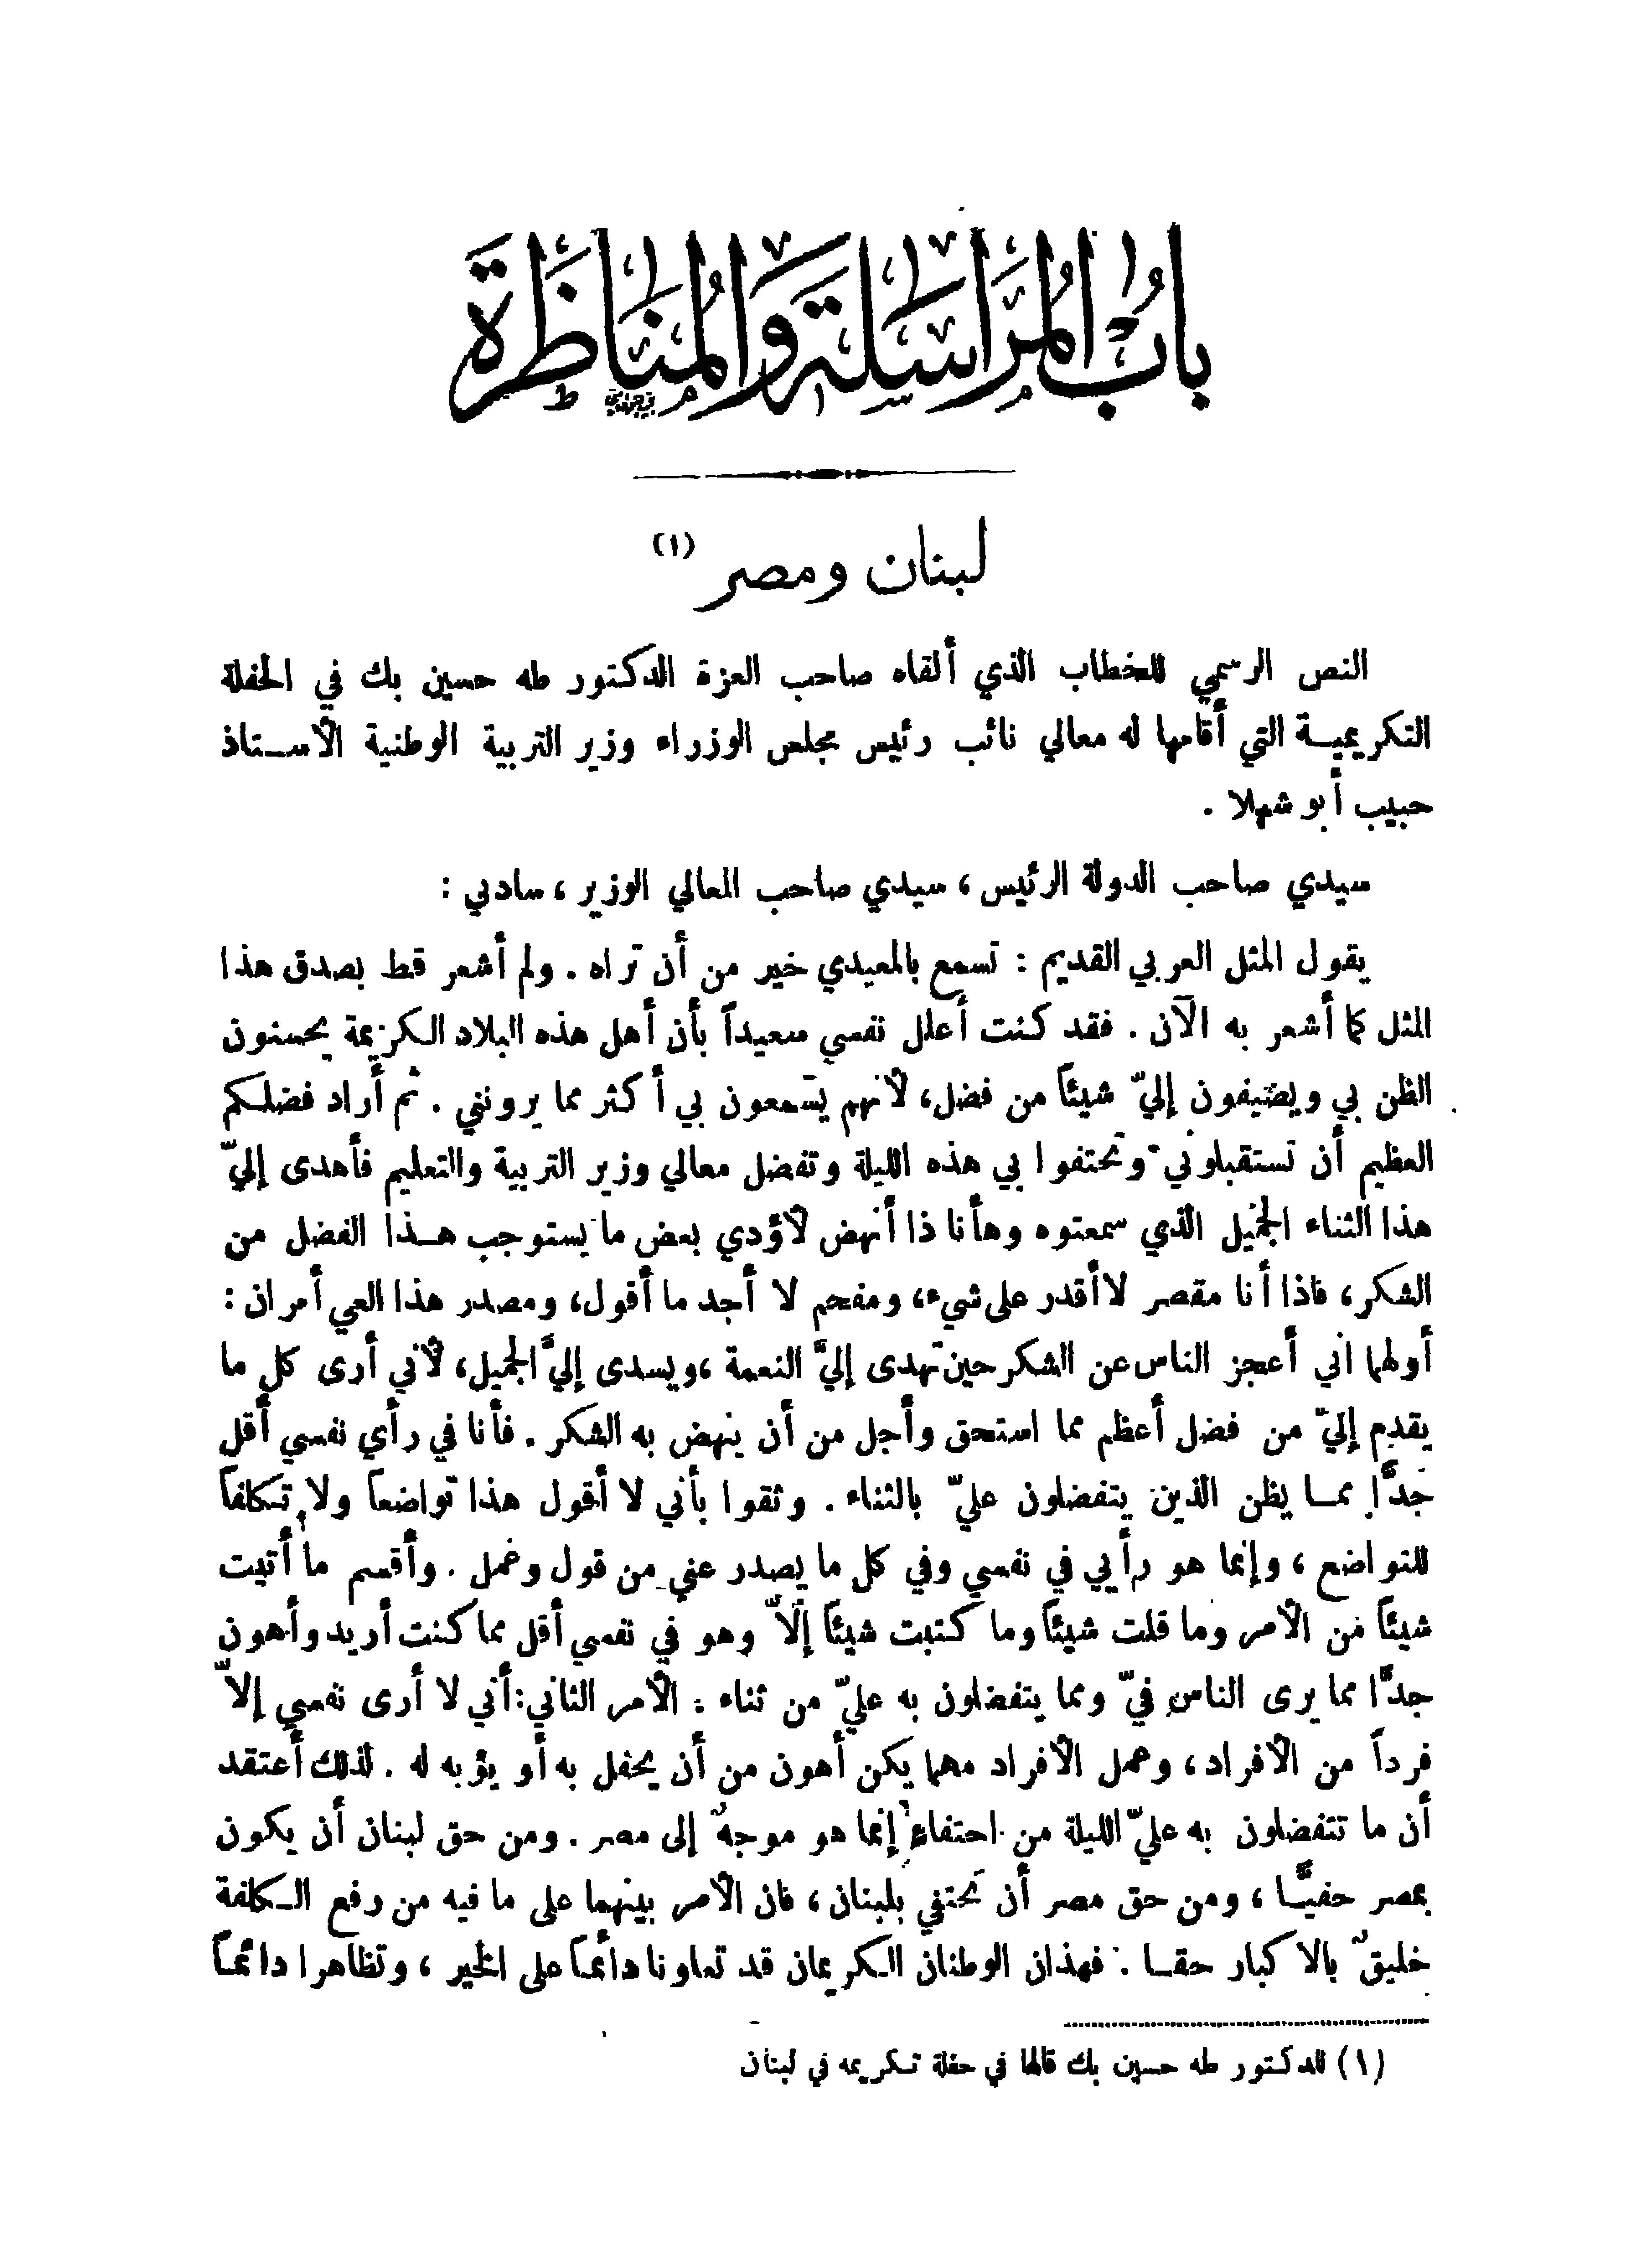 بَابُ المُرَاسَلَة وَالمُنَاظَرَة
لبنان ومصر (١)
النص الرسمي للخطاب الذي ألقاه صاحب العزة الدكتور طه حسين بك في الحفلة
التكريمية التي أقامها له معالي نائب رئيس مجلس الوزراء وزير التربية الوطنية الأستاذ
حبيب أبو شهلا .
سيدي صاحب الدولة الرئيس ، سيدي صاحب المعالي الوزير ، سادتي :
يقول المثل العربي القديم : تسمع بالمعيدي خير من أن تراه . ولم أشعر قط بصدق هذا
المثل كما أشعر به الآن . فقد كنت أعلل نفسي سعيداً بأن أهل هذه البلاد الكريمة يحسنون
الظن بي ويضيفون إليّ شيئاً من فضل، لأنهم يسمعون بي أكثر مما يرونني . ثم أراد فضلكم
العظيم أن تستقبلوني وتحتفوا بي هذه الليلة وتفضل معالي وزير التربية والتعليم فأهدى إليّ
هذا الثناء الجميل الذي سمعتوه وهأنا ذا أنهض لأؤدي بعض ما يستوجب هذا الفضل من
الشكر، فاذا أنا مقصر لا أقدر على شيء، ومفحم لا أجد ما أقول، ومصدر هذا العي أمران :
أولهما اني أعجز الناس عن الشكر حين تهدى إليَّ النعمة ، ويسدى إليَّ الجميل، لأني أرى كل ما
يقدم إليّ من فضل أعظم مما استحق وأجل من أن ينهض به الشكر . فأنا في رأي نفسي أقل
جدًّا مما يظن الذين يتفضلون عليّ بالثناء . وثقوا بأني لا أقول هذا تواضعاً ولا تكلفاً
للتواضع ، وإنما هو رأيي في نفسي وفي كل ما يصدر عني من قول وعمل . وأقسم ما أتيت
شيئاً من الأمر وما قلت شيئاً وما كتبت شيئاً إلاّ وهو في نفسي أقل مما كنت أريد وأهون
جدًّا مما يرى الناس فيّ ومما يتفضلون به عليّ من ثناء : الأمر الثاني : أني لا أرى نفسي إلاّ
فرداً من الأفراد ، وعمل الأفراد مهما يكن أهون من أن يحفل به أو يؤبه له . لذلك أعتقد
أن ما تتفضلون به عليّ الليلة من احتفاء إنما هو موجهٌ إلى مصر . ومن حق لبنان أن يكون
بمصر حفيًّا ، ومن حق مصر أن تحتفي بلبنان ، فان الأمر بينهما على ما فيه من رفع الكلفة
خليقٌ بالاكبار حقا . فهذان الوطنان الكريمان قد تعاونا دائماً على الخير ، وتظاهرا دائماً
(١) للدكتور طه حسين بك قالها في حفلة تكريمه في لبنان